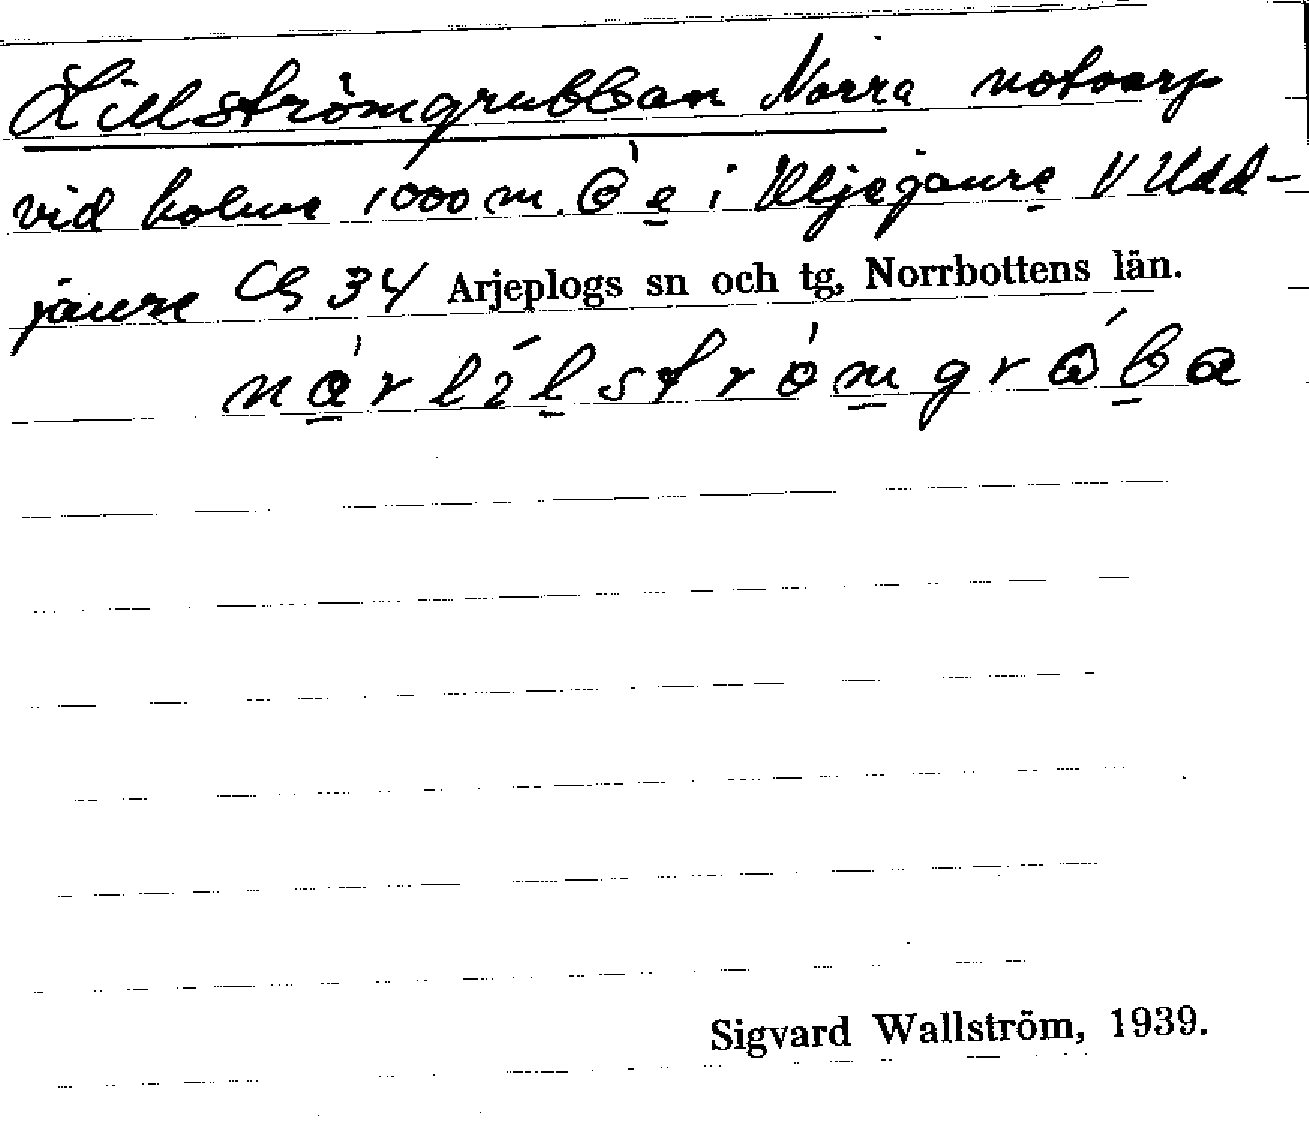 Lillströmgrubban Norra notvarp
vid holme 1000 m. i Uljejaure V Udd-
jaure C8 34 Arjeplogs sn och tg, Norrbottens län.
Sigvard Wallström, 1939.